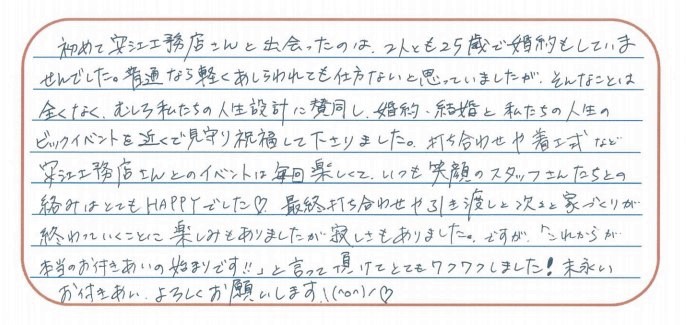 初めて安江工務店さんと出会ったのは、2人とも25歳で婚約もしていま
せんでした。普通なら軽くあしらわれても仕方ないと思っていましたが、そんなことは
全くなく、むしろ私たちの人生設計に賛同し、婚約・結婚と私たちの人生の
ビックイベントを近くで見守り祝福して下さりました。打ち合わせや着工式など
安江工務店さんとのイベントは毎回楽しくて、いつも笑顔のスタッフさんたちとの
絡みはとてもHAPPYでした♡ 最終打ち合わせや引き渡しと次々と家づくりが
終わっていくことに楽しみもありましたが寂しさもありました。ですが、「これからが
本当のお付きあいの始まりです!!」と言って頂けてとてもワクワクしました! 末永い
お付きあい、よろしくお願いします!(^o^)/♡